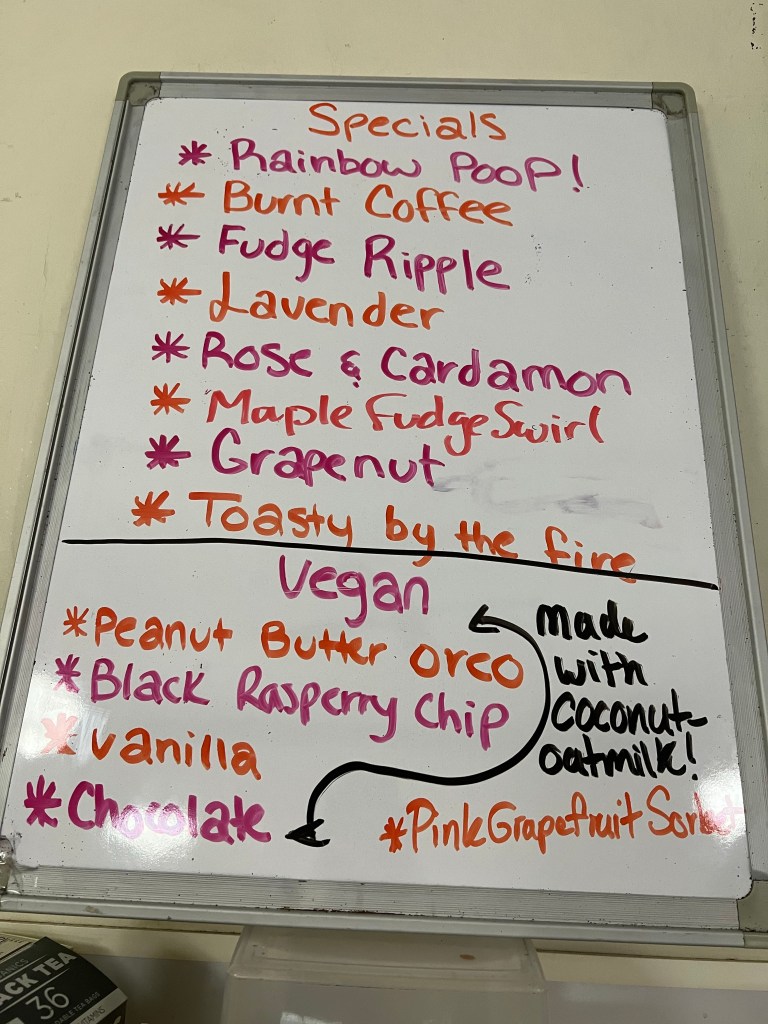 Specials
* Rainbow Poop!
* Burnt Coffee
* Fudge Ripple
* Lavender
* Rose & Cardamon
* Maple Fudge Swirl
* Grapenut
* Toasty by the fire
Vegan
* Peanut Butter oreo
* Black Rasperry Chip
* vanilla
* Chocolate
made
with
coconut-
oatmilk!
* Pink Grapefruit Sorbet
ACK TEA
36